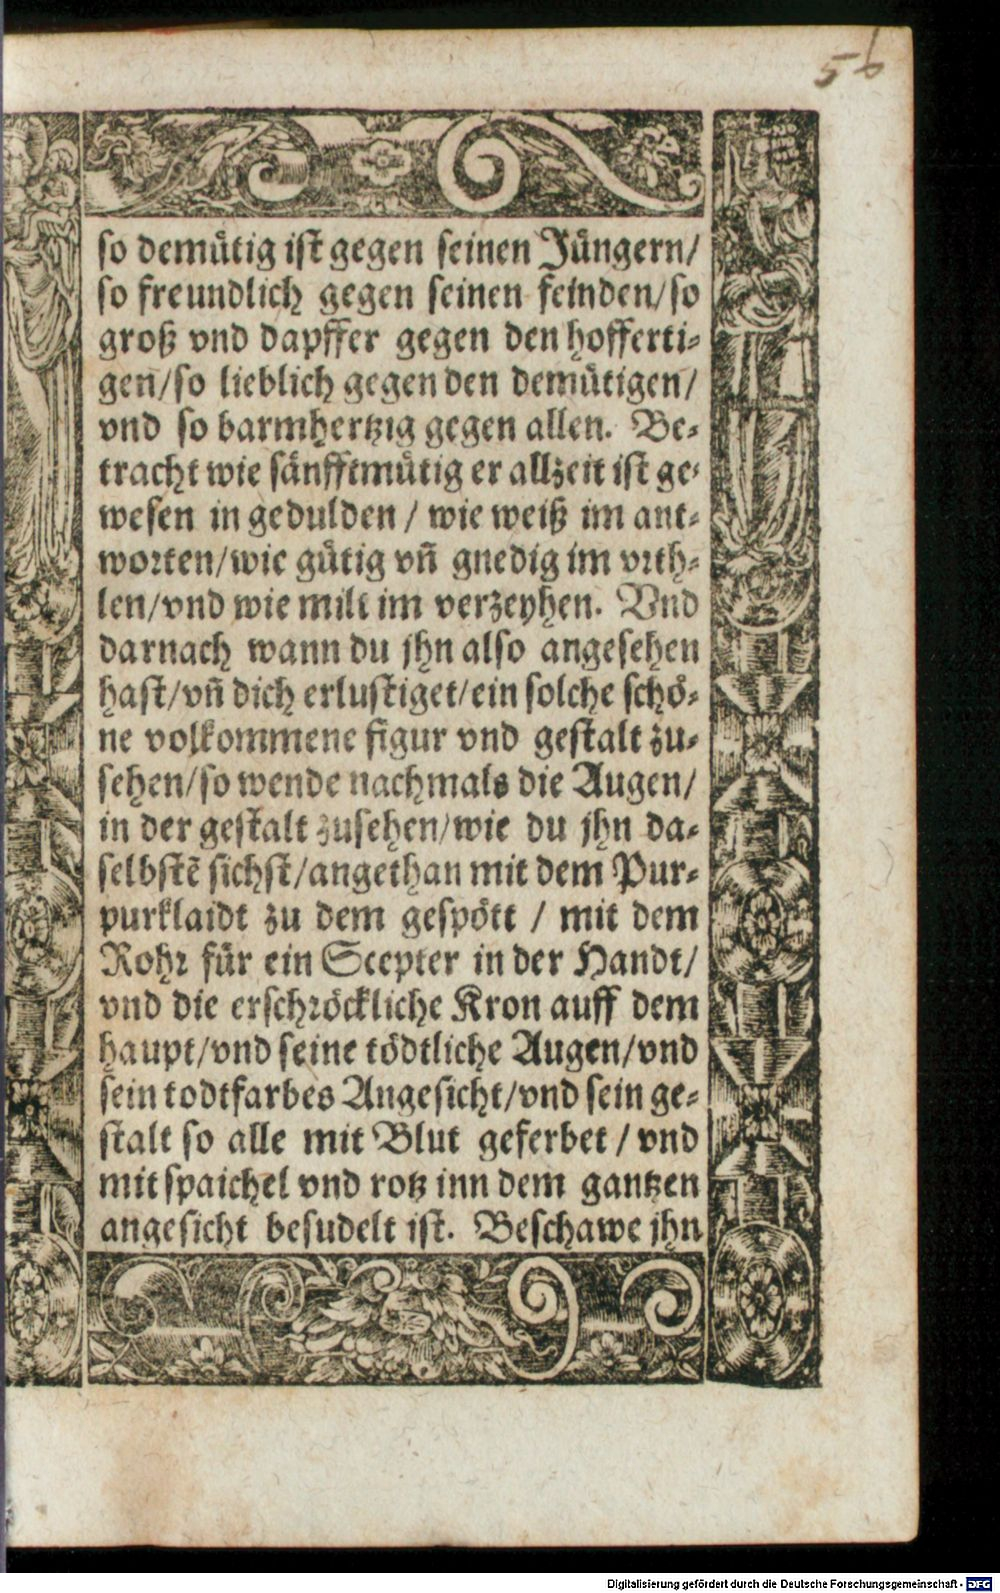 56
so demütig ist gegen seinen Jüngern/
so freundlich gegen seinen feinden/so
groß vnd dapffer gegen den hofferti-
gen/so lieblich gegen den demütigen/
vnd so barmhertzig gegen allen. Be-
tracht wie sänfftmütig er allzeit ist ge-
wesen in gedulden / wie weiß im ant-
worten/wie gütig vñ gnedig im vrth-
len/vnd wie milt im verzeyhen. Vnd
darnach wann du jhn also angesehen
hast/vñ dich erlustiget/ein solche schö-
ne volkommene figur vnd gestalt zu-
sehen/so wende nachmals die Augen/
in der gestalt zusehen/wie du jhn da-
selbstē sichst/angethan mit dem Pur-
purklaidt zu dem gespött / mit dem
Rohr für ein Scepter in der Handt/
vnd die erschröckliche Kron auff dem
haupt/vnd seine tödtliche Augen/vnd
sein todtfarbes Angesicht/vnd sein ge-
stalt so alle mit Blut geferbet / vnd
mit spaichel vnd rotz inn dem gantzen
angesicht besudelt ist. Beschawe jhn
Digitalisierung gefördert durch die Deutsche Forschungsgemeinschaft - DFG